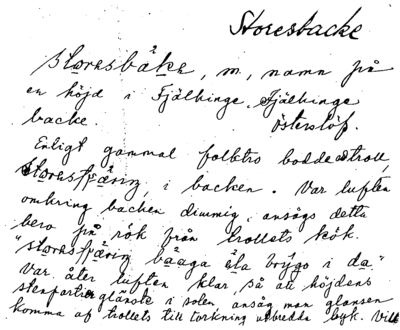 Storesbacke
Storesbåke, m, namn på
en höjd i Fjälkinge, Fjälkinge
backe. Österslöf.
Enligt gammal folktro bodde ett troll,
i backen. Var luften
omkring backen dimmig, ansågs detta
bero på rök från trollets kök.
i da"
Var åter luften klar, så att höjdens
stenpartier glänste i solen ansåg man glansen
komma af trollets till torkning utbredda byk. Vill